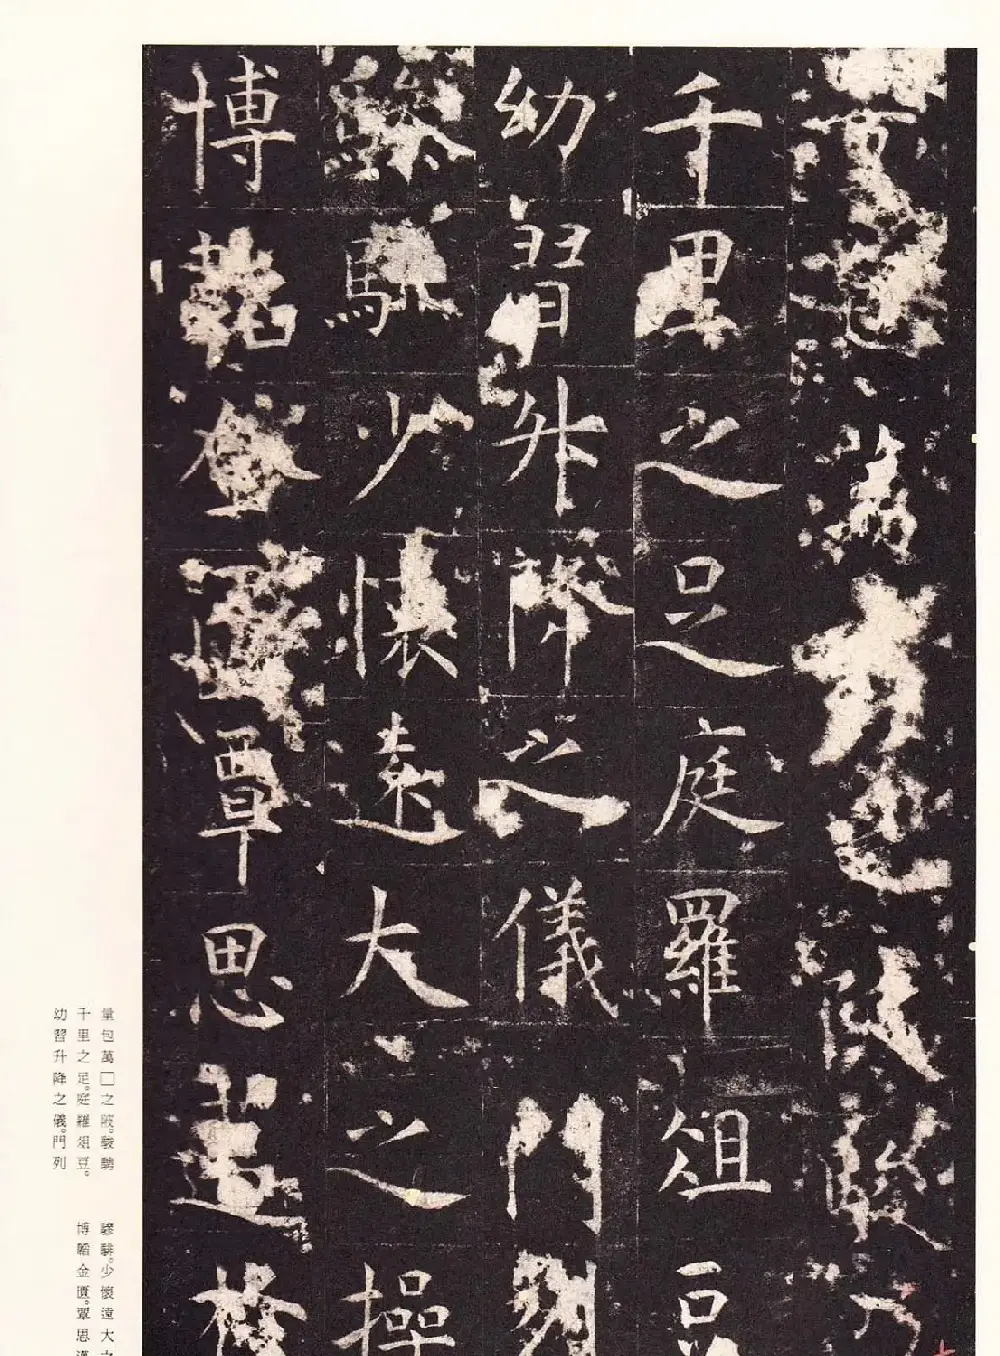 量包萬之陂駿
千里之足庭羅俎豆
幼習升降之儀門列
驂騑少懷遠大之操
博韜金匱覃思
量包萬□之陂。駿騁
千里之足。庭羅俎豆。
幼習升降之儀。門列
驂騑。少懷遠大之
博韜金匱。覃思